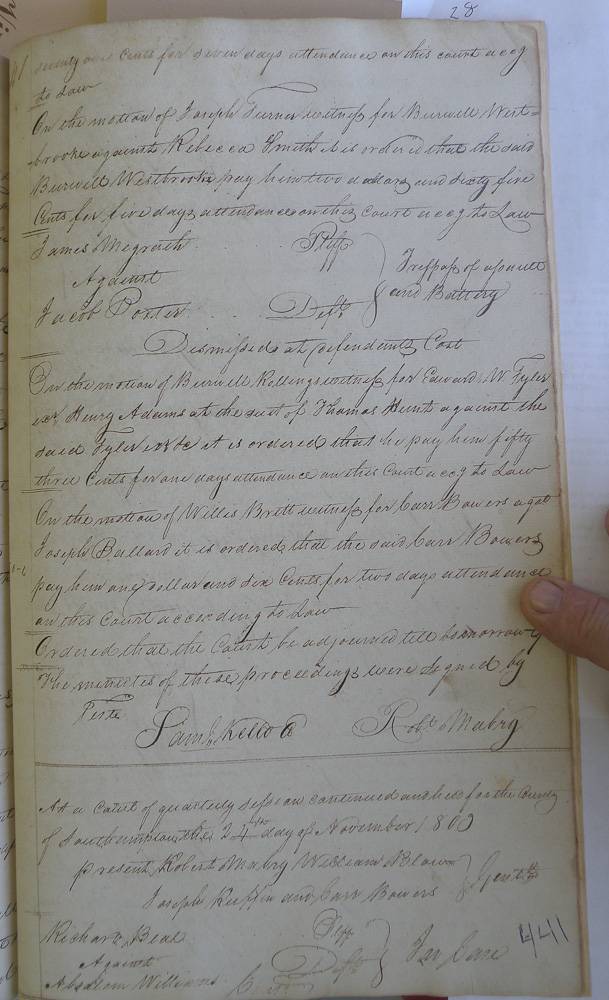 28
seventy one Cents for seven days attendance on this court accg
to Law
On the motion of Joseph Turner witness for Burwell West=
brooke against Rebecca Smith it is ordered that the said
Burwell Westbrooke pay him two dollars and sixty five
Cents for five days attendance on this Court accg to Law
James Megrath Pltff
Against
Trespass of assault
and Battery
Jacob Porter Deft
Dismissed at defendants Cost
On the motion of Burwell Kellings witness for Edward W Tyler
exr Henry Adams at the suit of Thomas Hunt against the
said Tyler exr &c it is ordered that he pay him fifty
three Cents for one days attendance on this Court accg to Law
On the motion of Willis Britt witness for Carr Bowers agst
Joseph Ballard it is ordered that the said Carr Bowers
pay him one dollar and six Cents for two days attendance
on this Court according to Law
Ordered that the Court be adjourned till tomorrow
The minutes of these proceedings were signed by
Teste
Saml Kello Robt Mabry
At a Court of quarterly session continued and held for the County
of Southampton the 24th day of November 1800
present Robert Mabry William Blow
Gent
Joseph Ruffin and Carr Bowers
Richard Beal Pltff
Against
In Case
Absalom Williams Deft
441